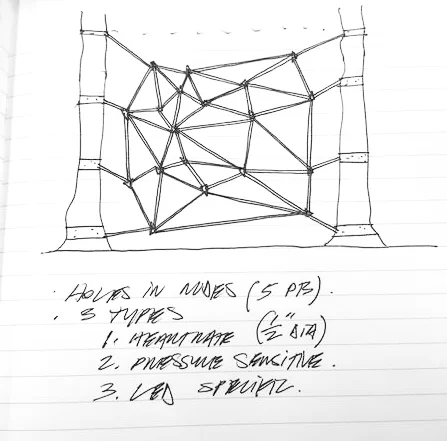 · HOLES IN NODES (5 PR).
· 3 TYPES
1. HEARTRATE (1/2" DIA)
2. PRESSURE SENSITIVE.
3. LED SPECIFIC.